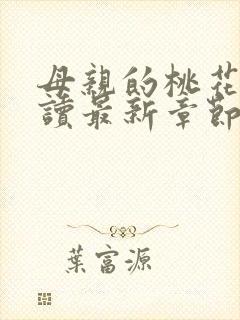 母親的桃花
讀最新章節
葉富源